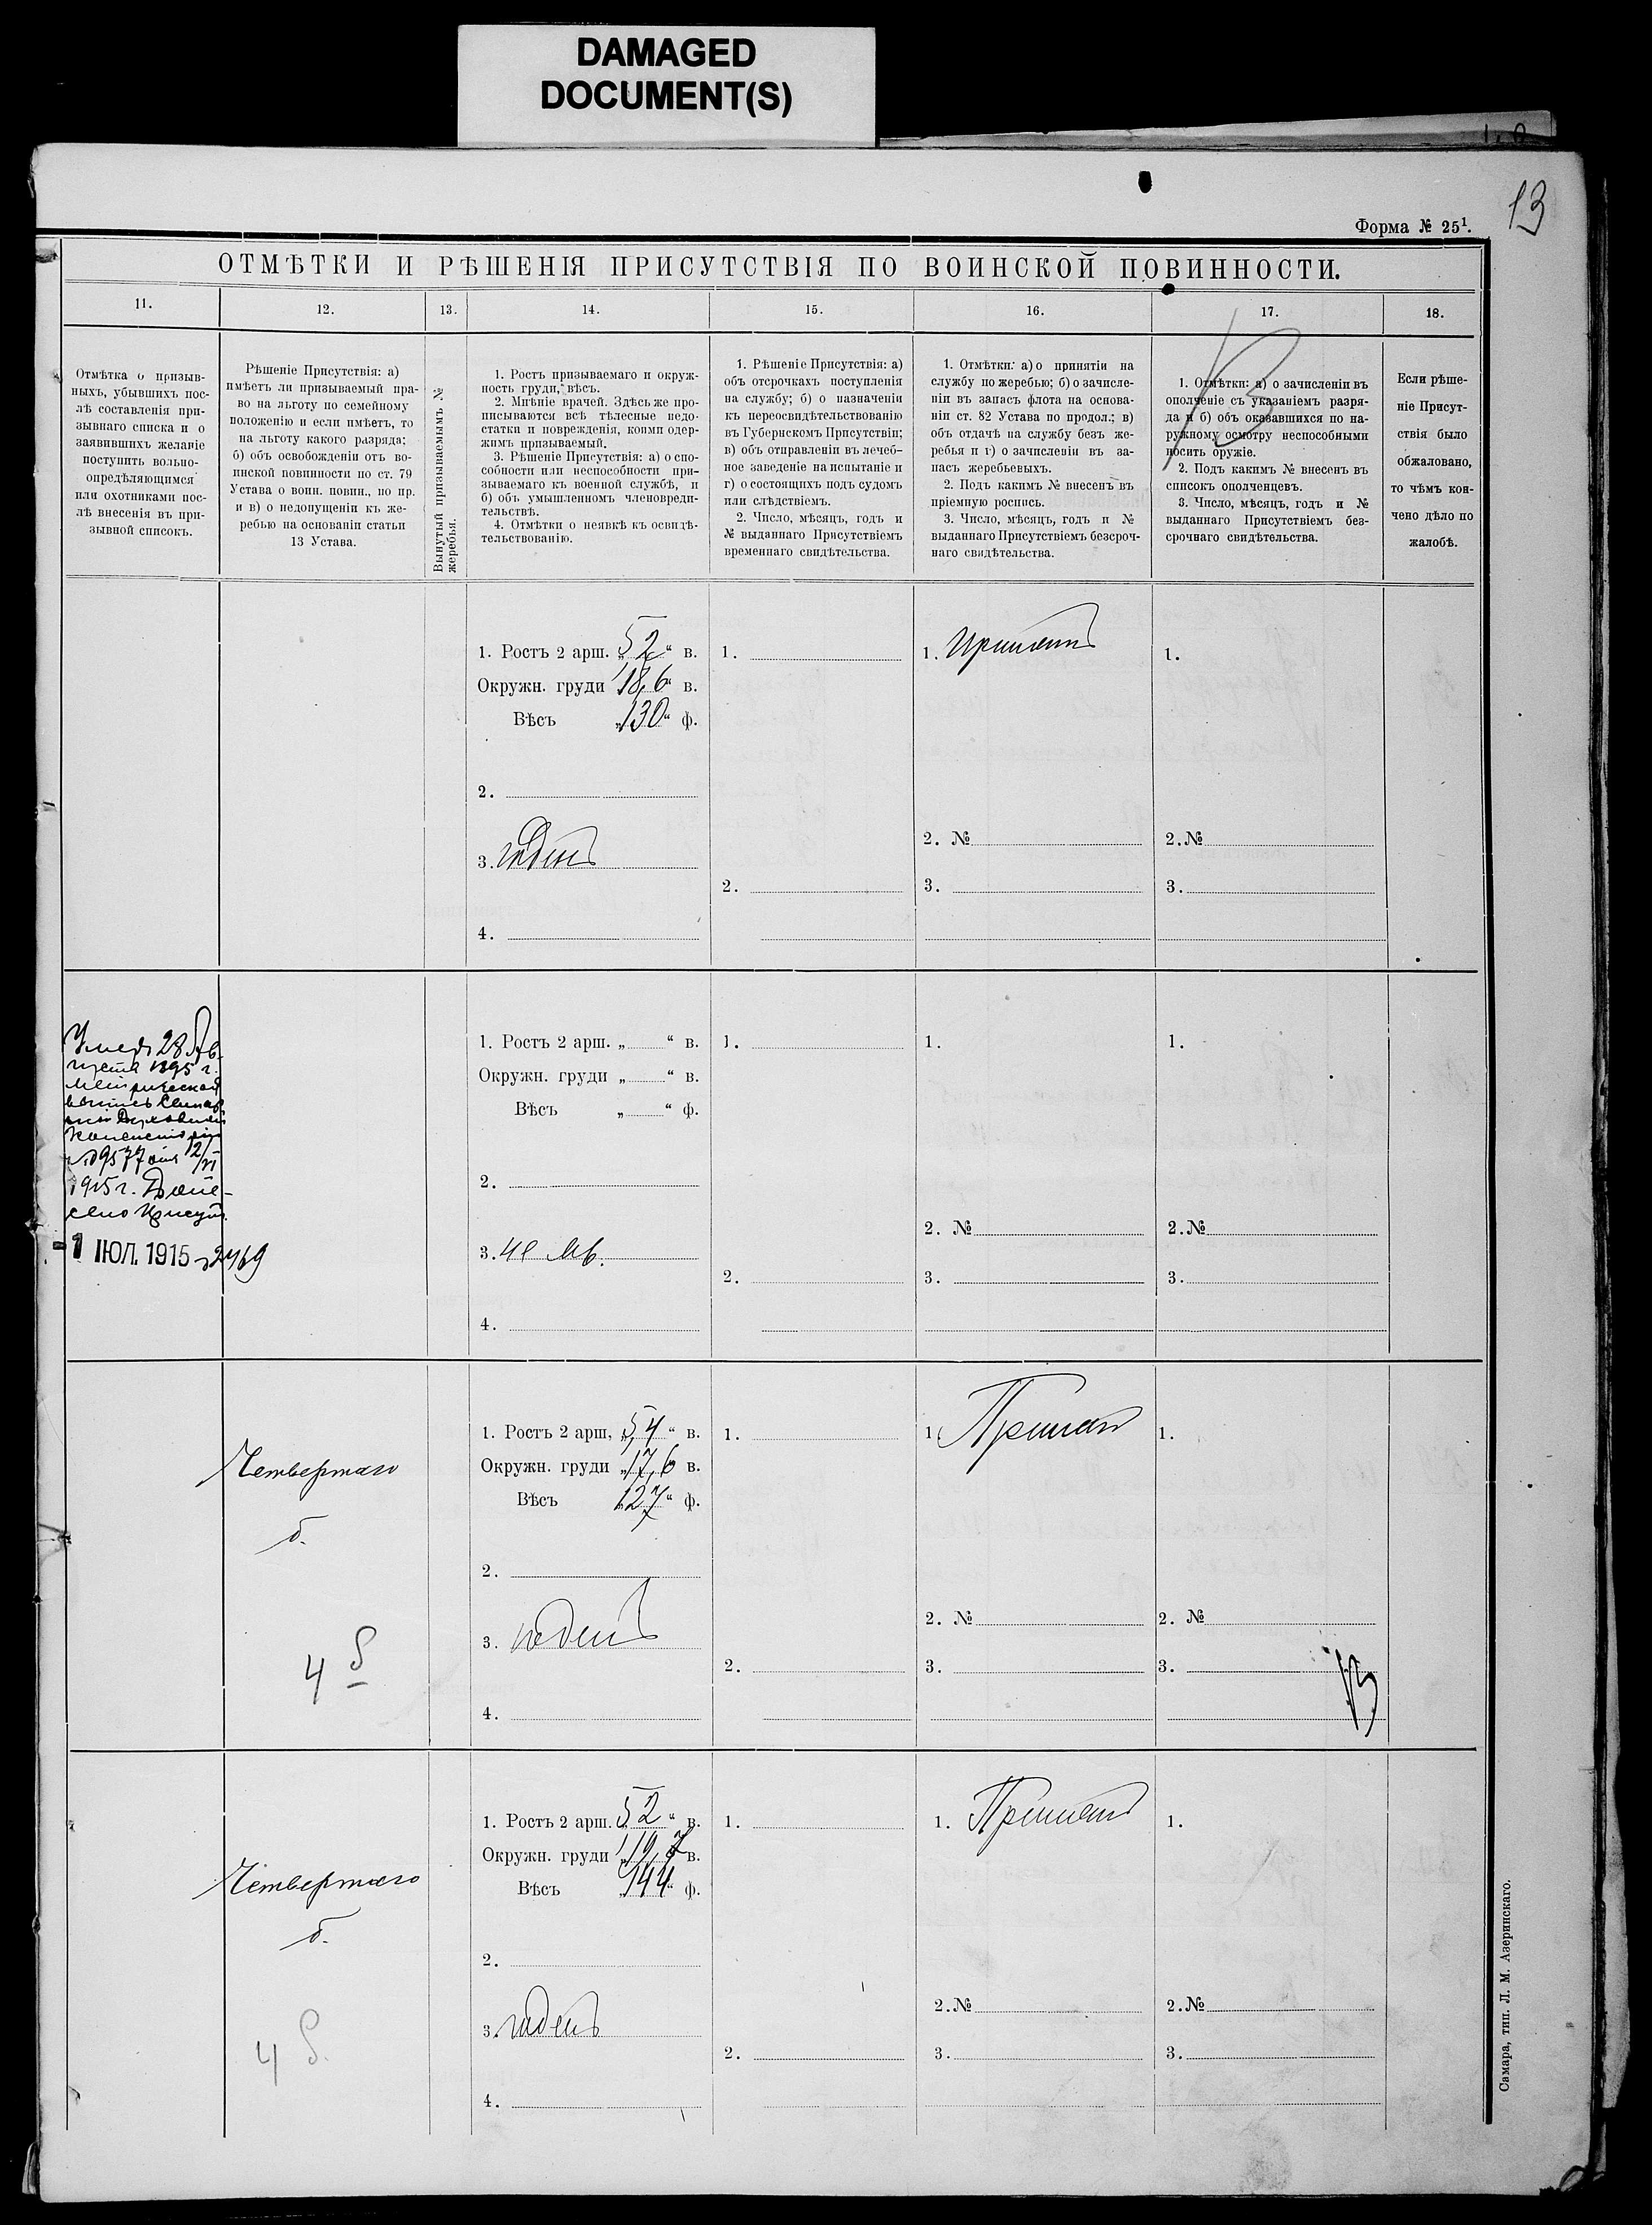 DAMAGED
DOCUMENT(S)
13
Форма № 25¹.
ОТМѢТКИ И РѢШЕНІЯ ПРИСУТСТВІЯ ПО ВОИНСКОЙ ПОВИННОСТИ.
11.
12.
13.
14.
15.
16.
17.
18.
Отмѣтка о призыв-
ныхъ, убывшихъ пос-
лѣ составленія при-
зывнаго списка и о
заявившихъ желаніе
поступить вольно-
опредѣляющимся
или охотниками пос-
лѣ внесенія въ при-
зывной списокъ.
Рѣшеніе Присутствія: а)
имѣетъ ли призываемый пра-
во на льготу по семейному
положенію и если имѣетъ, то
на льготу какого разряда;
б) объ освобожденіи отъ во-
инской повинности по ст. 79
Устава о воин. повин., но пр.
и в) о недопущеніи къ же-
ребью на основаніи статьи
13 Устава.
Вынутый призываемымъ №
жеребья.
1. Ростъ призываемаго и окруж-
ность груди, вѣсъ.
2. Мнѣніе врачей. Здѣсь же про-
писываются всѣ тѣлесные недо-
статки и поврежденія, коими одер-
жимъ призываемый.
3. Рѣшеніе Присутствія: а) о спо-
собности или неспособности при-
зываемаго къ военной службѣ, и
б) объ умышленномъ членовреди-
тельствѣ.
4. Отмѣтки о неявкѣ къ освидѣ-
тельствованію.
1. Рѣшеніе Присутствія: а)
объ отсрочкахъ поступленія
на службу; б) о назначеніи
къ переосвидѣтельствованію
въ Губернскомъ Присутствіи;
в) объ отправленіи въ лечеб-
ное заведеніе на испытаніе и
г) о состоящихъ подъ судомъ
или слѣдствіемъ.
2. Число, мѣсяцъ, годъ и
№ выданнаго Присутствіемъ
временнаго свидѣтельства.
1. Отмѣтки: а) о принятіи на
службу по жеребью; б) о зачисле-
ніи въ запасъ флота на основа-
ніи ст. 82 Устава по продол.; в)
объ отдачѣ на службу безъ же-
ребья и г) о зачисленіи въ за-
пасъ жеребьевыхъ.
2. Подъ какимъ № внесенъ въ
пріемную роспись.
3. Число, мѣсяцъ, годъ и №
выданнаго Присутствіемъ безсроч-
наго свидѣтельства.
1. Отмѣтки: а) о зачисленіи въ
ополченіе съ указаніемъ разря-
да и б) объ оказавшихся по на-
ружному осмотру неспособными
носить оружіе.
2. Подъ какимъ № внесенъ въ
списокъ ополченцевъ.
3. Число, мѣсяцъ, годъ и №
выданнаго Присутствіемъ без-
срочнаго свидѣтельства.
Если рѣше-
ніе Присут-
ствія было
обжаловано,
то чѣмъ кон-
чено дѣло по
жалобѣ.
1. Ростъ 2 арш. „52“ в.
Окружн. груди „18,6“ в.
Вѣсъ „130“ ф.
2.
3. годенъ
4.
1.
2.
1. Принятъ
2. №
3.
1.
2. №
3.
Умеръ 28 Ав-
густа 1895 г.
Метрическая
выпись Самар
ской Духовной
Консисторіи
№ 9577 отъ 12/VI
1915 г. Доне-
сено Присут.
1 ІЮЛ. 1915 № 2469
1. Ростъ 2 арш. „ “ в.
Окружн. груди „ “ в.
Вѣсъ „ “ ф.
2.
3.
4.
1.
2.
1.
2. №
3.
1.
2. №
3.
Четвертаго
б.
4 б
1. Ростъ 2 арш. „5,4“ в.
Окружн. груди „17,6 в.
Вѣсъ „127“ ф.
2.
3. годенъ
4.
1.
2.
1. Принятъ
2. №
3.
1.
2. №
3.
Четвертаго
б.
4 б.
1. Ростъ 2 арш. „52“ в.
Окружн. груди „19,7 в.
Вѣсъ „144“ ф.
2.
3. годенъ
4.
1.
2.
1. Принятъ
2. №
3.
1.
2. №
3.
Самара, тип. Л. М. Азеринскаго.